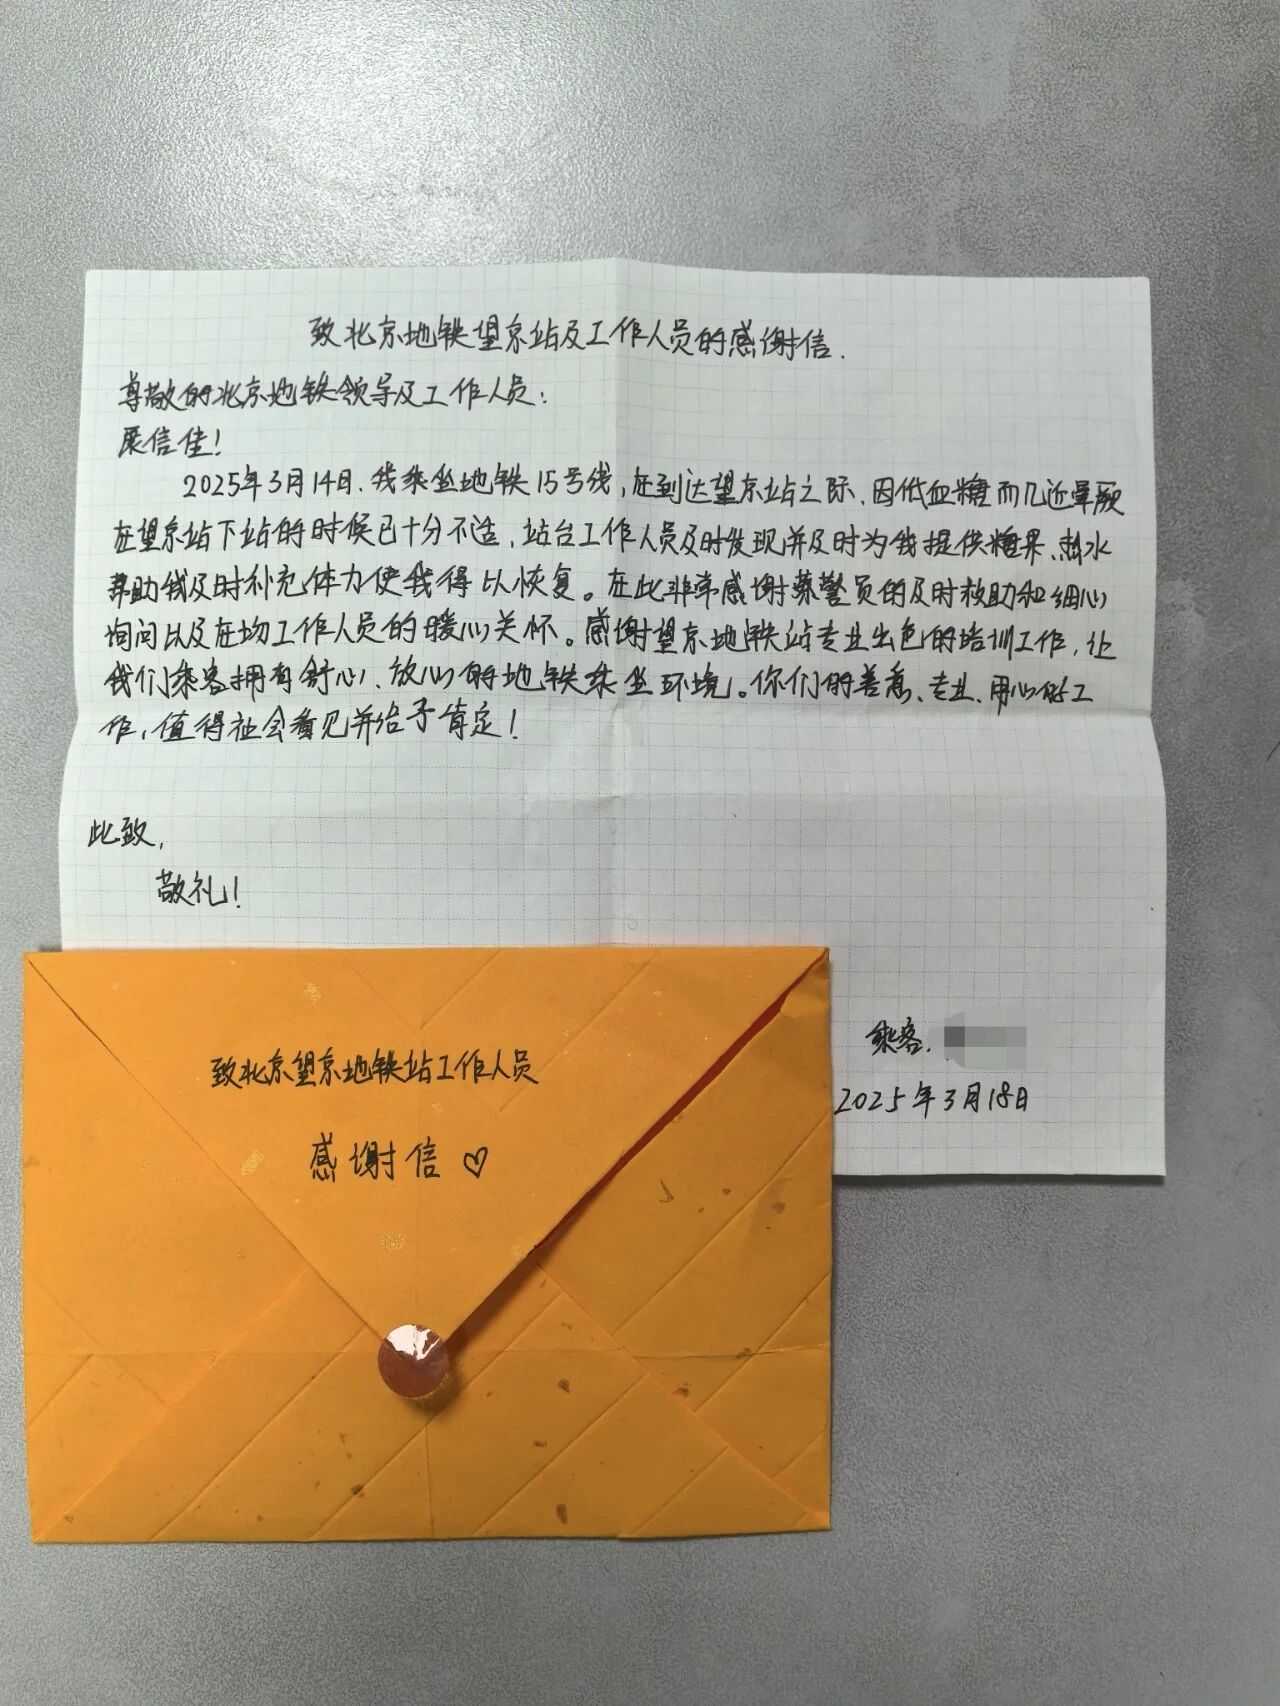 致北京地铁望京站及工作人员的感谢信.
尊敬的北京地铁领导及工作人员:
展信佳!
2025年3月14日、我乘坐地铁15号线,在到达望京站之际、因低血糖而几近晕厥
在望京站下站的时候已十分不适、站台工作人员及时发现并及时为我提供糖果、热水
帮助我及时补充体力使我得以恢复。在此非常感谢蔡警员的及时救助和细心
询问以及在场工作人员的暖心关怀。感谢望京地铁站专业出色的培训工作,让
我们乘客拥有舒心、放心的地铁乘坐环境。你们的善意、专业、用心的工
作,值得社会看见并给予肯定!
此致,
敬礼!
乘客.
2025年3月18日
致北京望京地铁站工作人员
感谢信♡